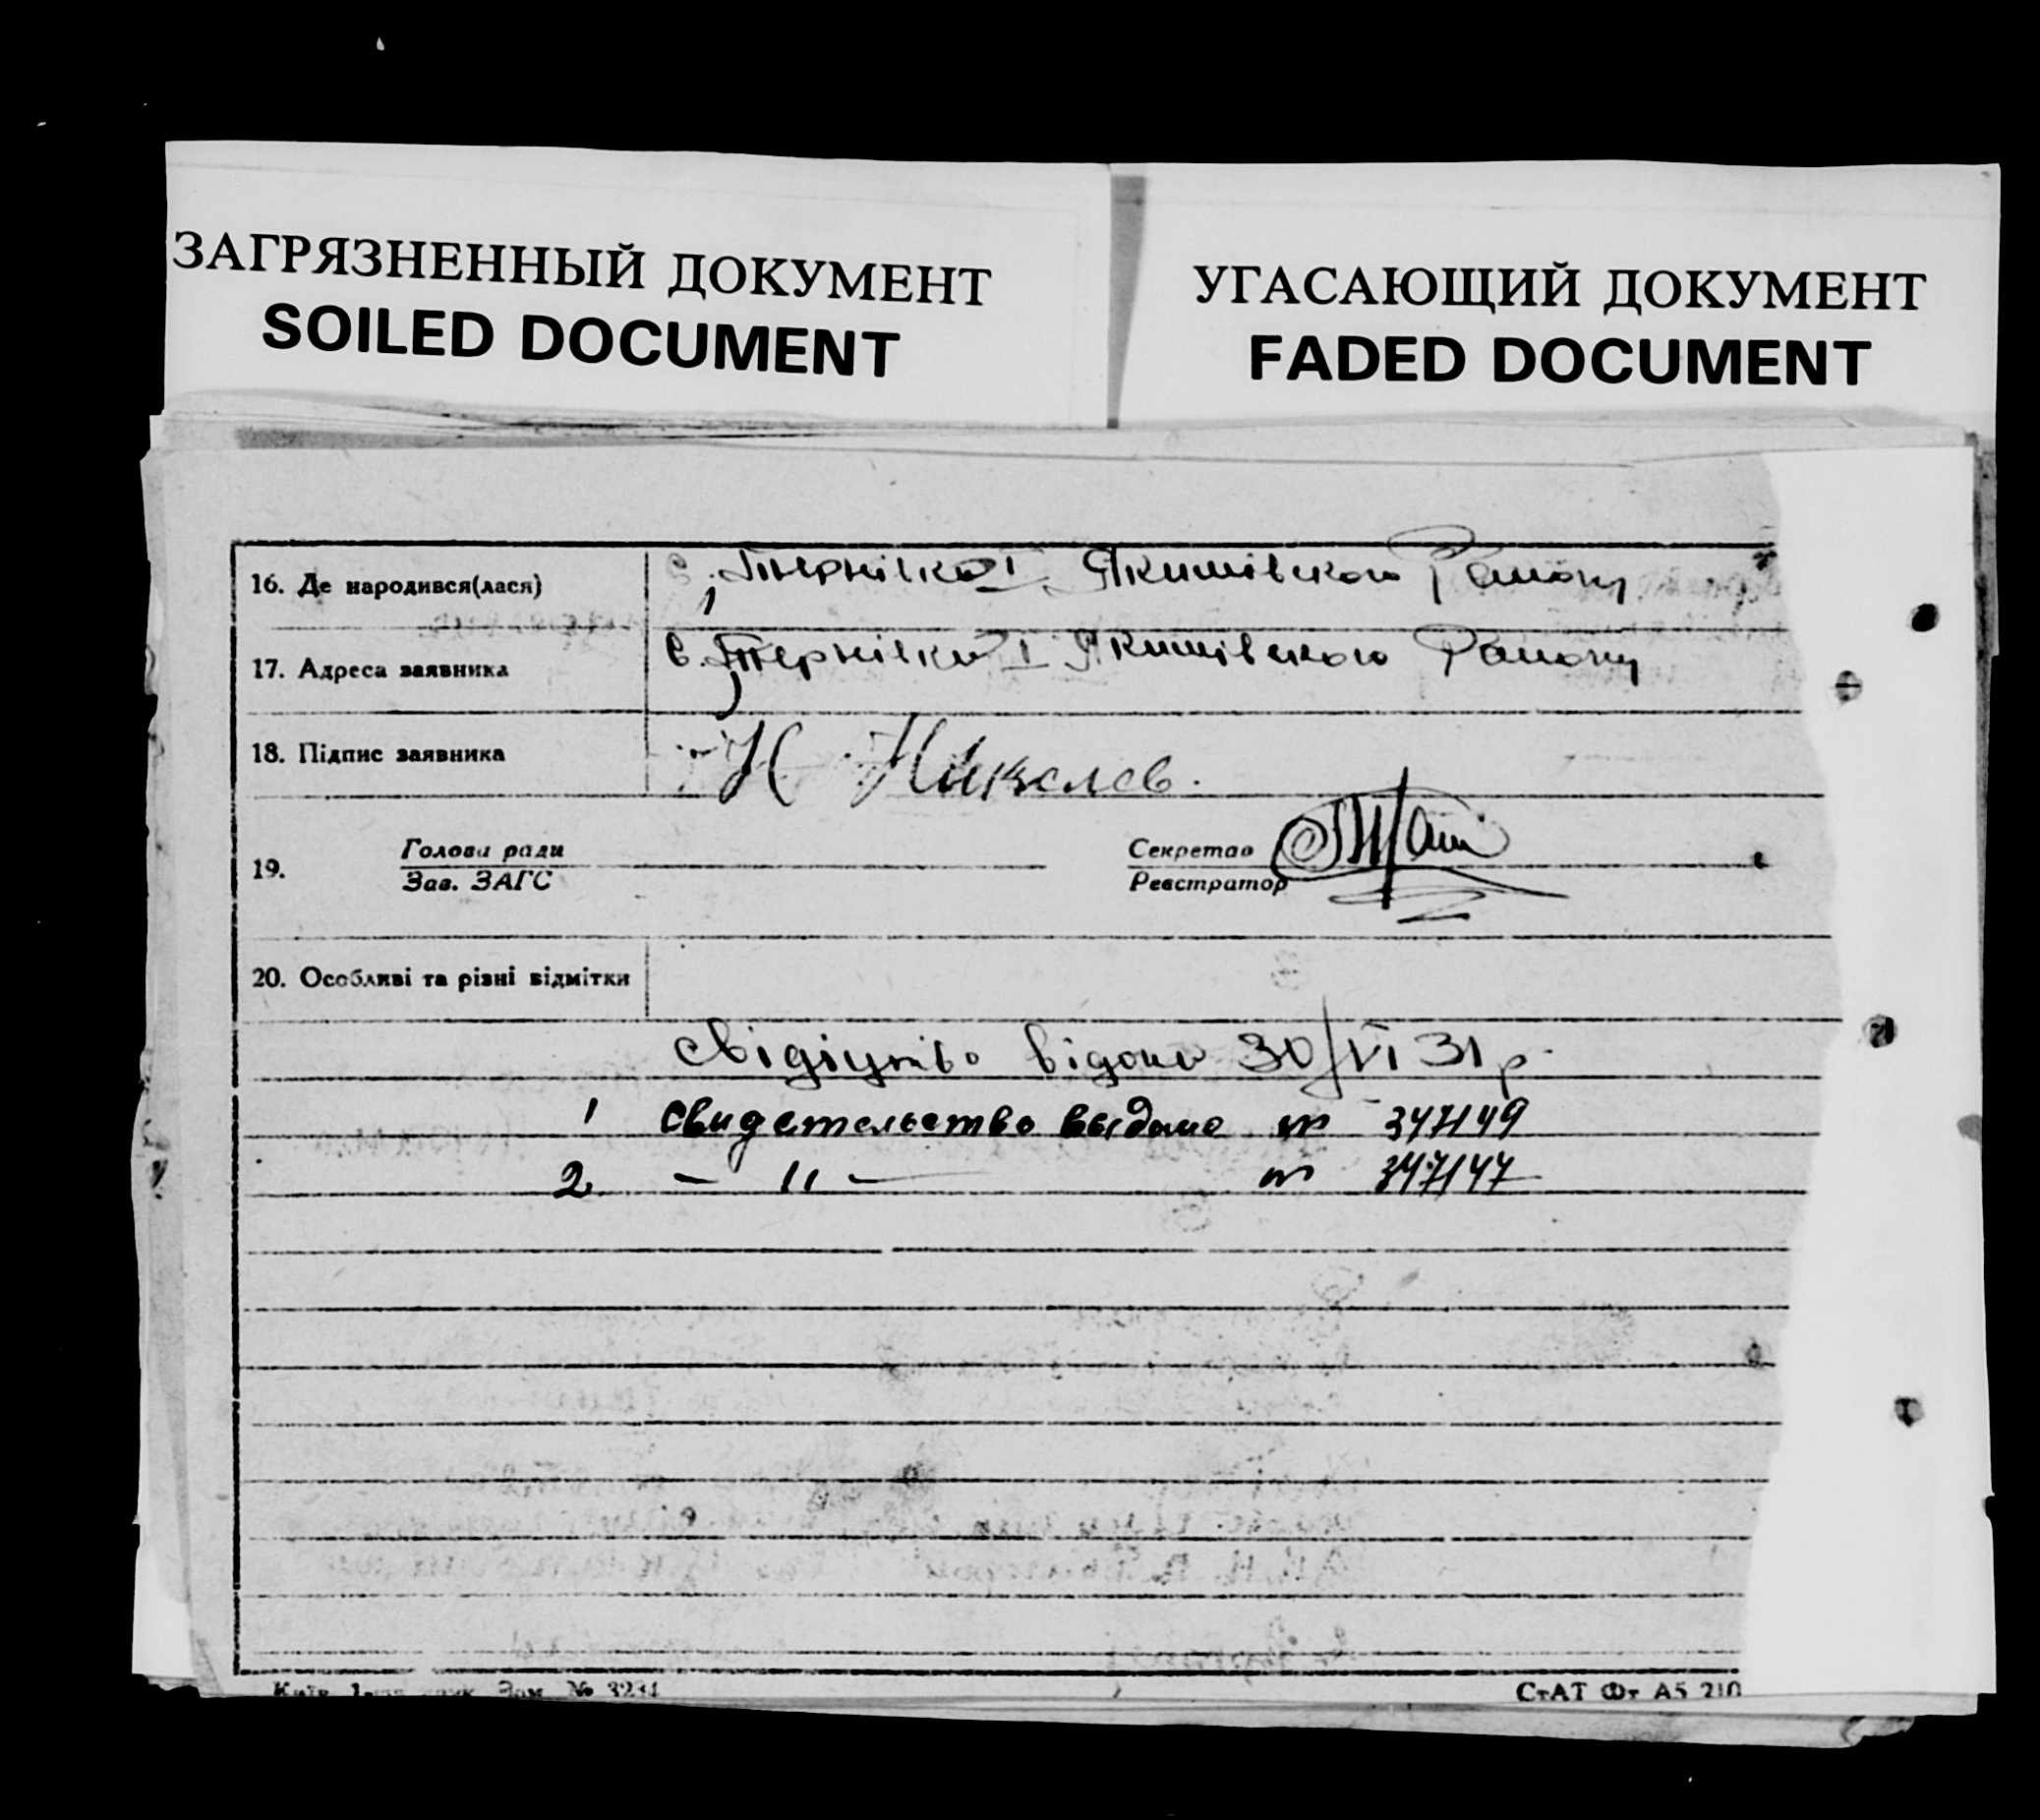 ЗАГРЯЗНЕННЫЙ ДОКУМЕНТ
SOILED DOCUMENT
УГАСАЮЩИЙ ДОКУМЕНТ
FADED DOCUMENT
16. Де народився(лася)
с. Тернівка I Якимівского Району
17. Адреса заявника
с. Тернівка I Якимівского Району
18. Підпис заявника
Н
19. Голова ради
Зав. ЗАГС
Секретар
Реєстратор
20. Особливі та різні відмітки
30/VI 31 р.
1 Свидетельство выдано № 347149
2. — 〃 — № 347147
Київ, Зам. № 3234
СтАТ Фт А5 210